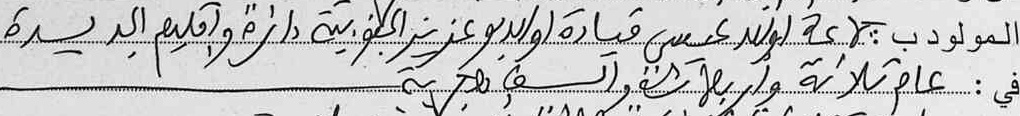 المولود ب: جماعة اولاد عيسى قيادة اولاد بوعزيز الجنوبية دائرة واقليم الجديدة
في: عام ثلاثة وأربعمائة وألف هجرية